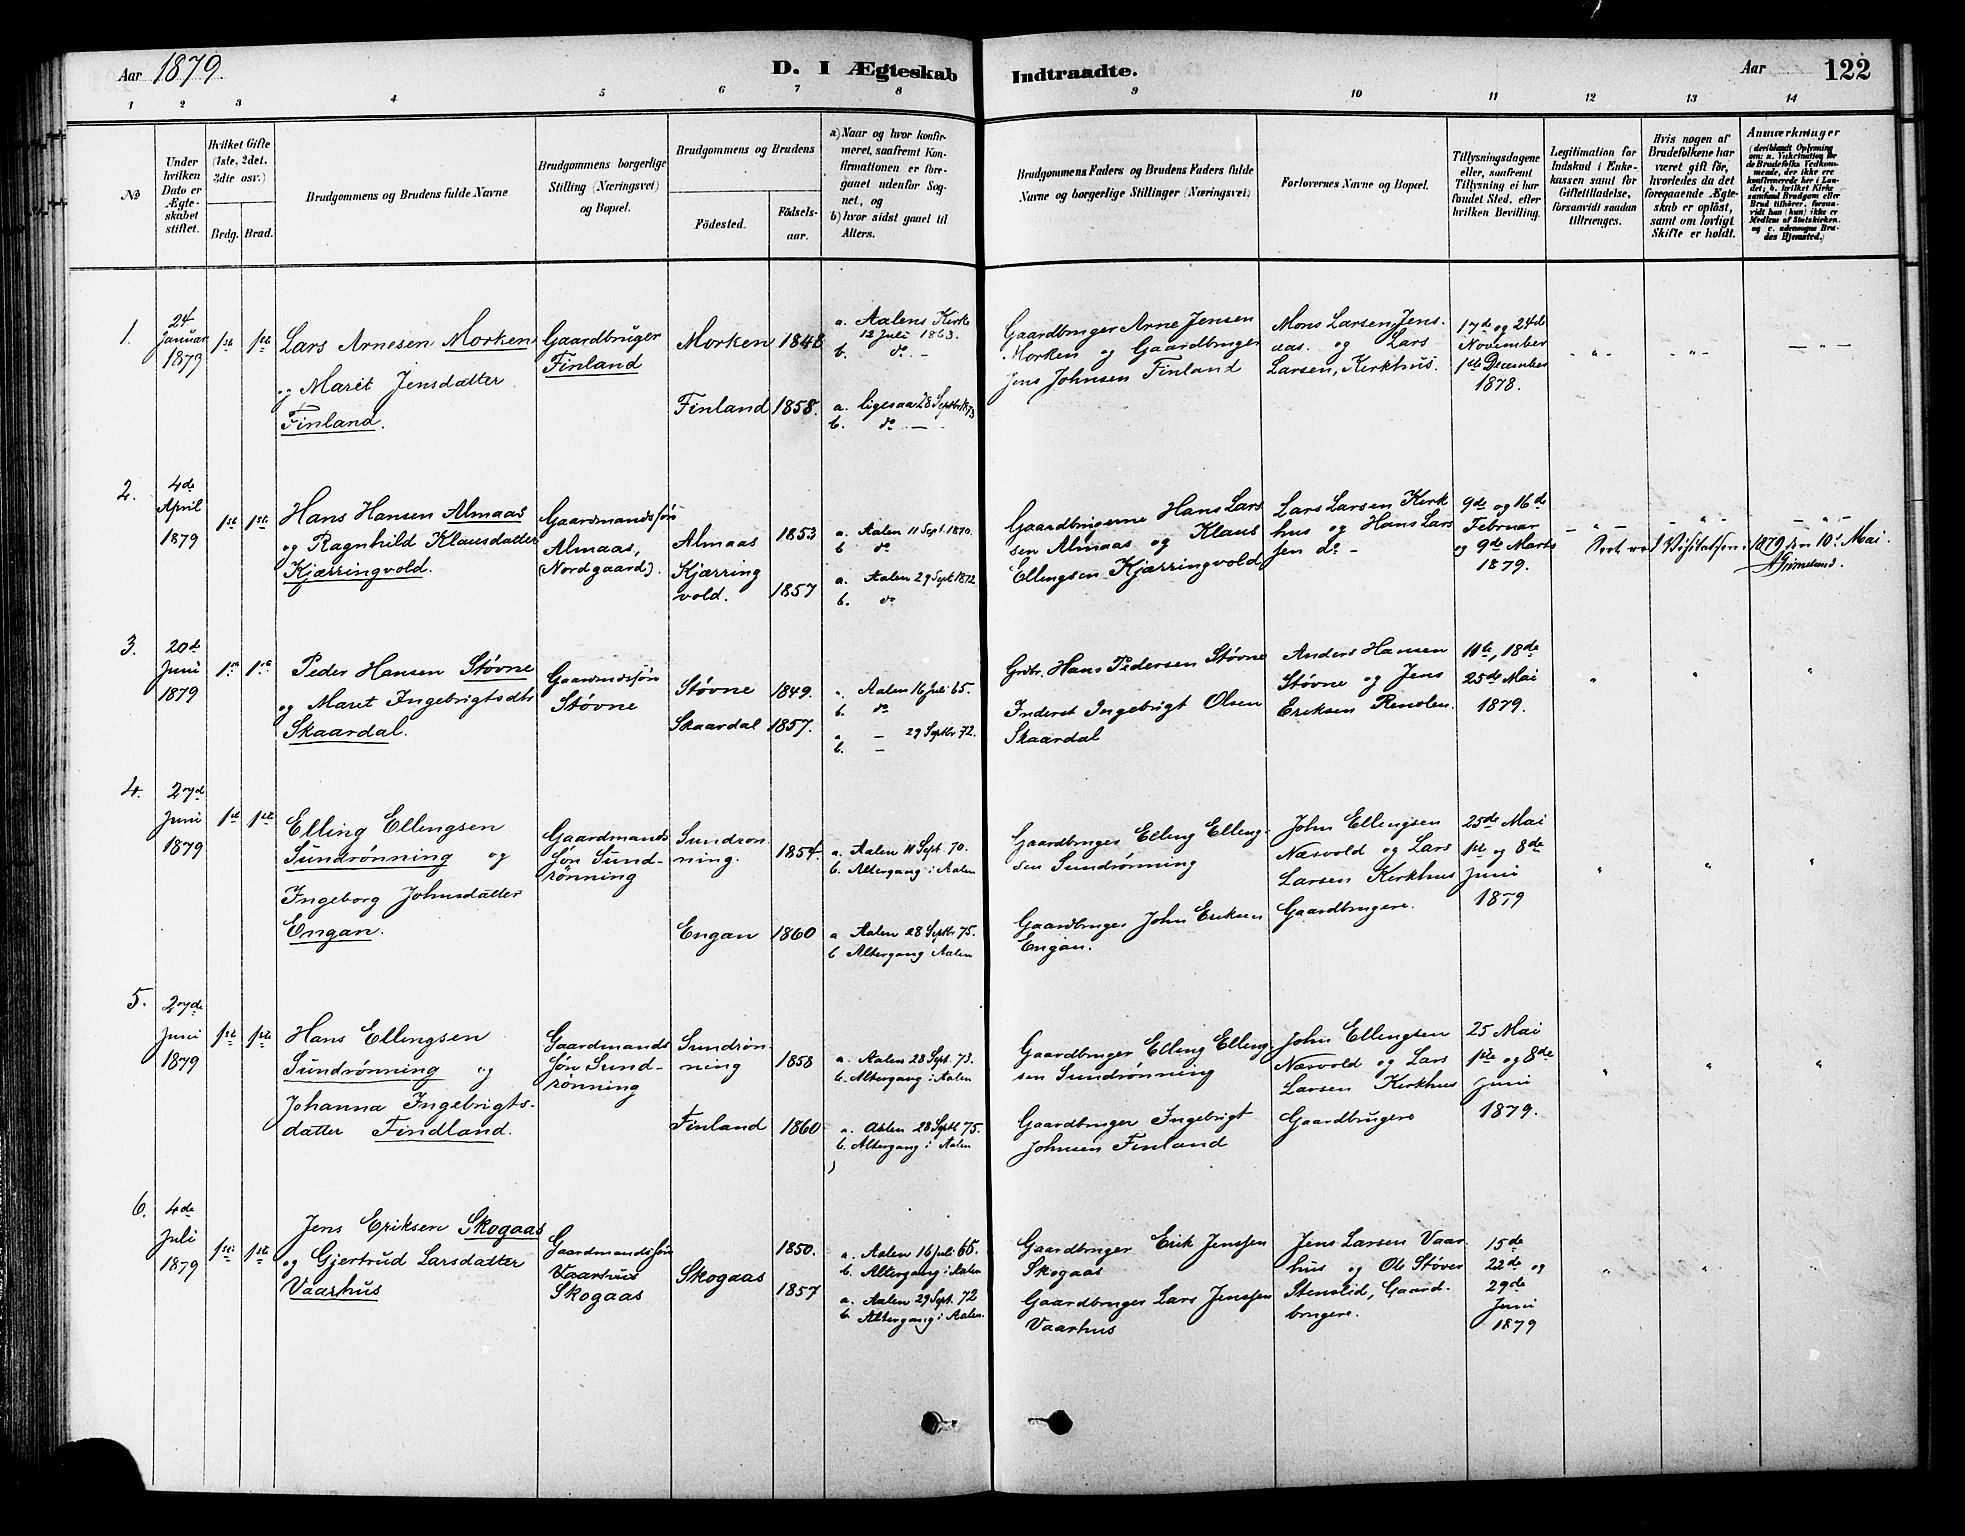 Aar 1879.
D. I Ægteskab Indtraadte.
Aar
122
1 2 3 4 5 6 7 8 9 10 11 12 13 14
No
Under hvilken Dato er Ægteskabet stiftet.
Hvilket Gifte (1ste, 2det, 3die osv.)
Brdg. Brud.
Brudgommens og Brudens fulde Navne
Brudgommens borgerlige Stilling (Næringsvei) og Bopæl.
Brudgommens og Brudens
Födested.
Födselsaar.
a) Naar og hvor konfirmeret, saafremt Konfirmationen er foregaaet udenfor Sognet, og
b) hvor sidst gaaet til Alters.
Brudgommens Faders og Brudens Faders fulde Navne og borgerlige Stillinger (Næringsvei).
Forlovernes Navne og Bopæl.
Tillysningsdagene eller, saafremt Tillysning ei har fundet Sted, efter hvilken Bevilling.
Legitimation for Indskud i Enkekassen samt for Giftetilladelse, forsaavidt saadan tiltrænges.
Hvis nogen af Brudefolkene har været gift før, hvorledes da det foregaaende Ægteskab er oplöst, samt om lovligt Skifte er holdt.
Anmærkninger
(deriblandt Oplysning om: a. Vakcination for de Brudefolks Vedkommende, der ikke ere konfirmerede her i Landet; b. hvilket Kirkesamfund Brudgom eller Brud tilhører, forsaavidt han (hun) ikke er Medlem af Statskirken, og c. udensogns Brudes Hjemsted.)
1.
24 Januar 1879
1ste 1ste
Lars Arnesen Morken
og Marit Jensdatter
Finland.
Gaardbruger
Finland
Morken 1848
Finland 1858.
a. Aalens Kirke
12 Juli 1863.
b. do. -
a. ligesaa 28 Septbr 1873
b. do. -
Gaardbruger Arne Jensen
Morken og Gaardbruger
Jens Johnsen Finland
Mons Larsen Jens-
aas og Lars
Larsen, Kirkhus.
17de og 24de
November
1ste December
1878.
2.
4de April 1879
1ste 1ste
Hans Hansen Almaas
og Ragnhild Klausdatter
Kjærringvold.
Gaardmandssøn
Almaas,
(Nordgaard).
Almaas 1853
Kjærring
vold. 1857
a. Aalen 11 Sept. 1870.
b do
a. Aalen 29 Sept 1872
b. do
Gaardbrugerne Hans Lars
sen Almaas og Klaus
Ellingsen Kjærringvold
Lars Larsen Kirk
hus og Hans Lars
sen do -
9de og 16de
Februar
og 9de Marts
1879.
ved Visitatsen 1879 den 10. Mai.
AGrimelund.
3.
20de Juni 1879
1ste 1ste
Peder Hansen Støvne
og Maret Ingebrigtsdtr
Skaardal.
Gaardmdssøn
Støvne
Støvne 1849.
Skaardal 1857.
a. Aalen 16 Juli 65.
b. do
a - 29 Septbr 72.
b. -
Grdbr. Hans Pedersen Støvne
Inderst Ingebrigt Olsen
Skaardal
Anders Hansen
Støvne og Jens
Eriksen Renolen.
11te, 18de
25de Mai
1879.
4.
27de Juni 1879
1ste 1ste
Elling Ellingsen
Sundrønning og
Ingeborg Johnsdatter
Engan.
Gaardmands
søn Sund-
rønning
Sundrøn-
ning. 1854.
Engan 1860
a. Aalen 11 Sept. 70.
b. Altergang i Aalen
a Aalen 28 Septbr 75.
b Altergang Aalen
Gaardbruger Elling Elling-
sen Sundrønning
Gaardbruger John Eriksen
Engan.
John Ellingsen
Næsvold og Lars
Larsen Kirkhus
Gaardbrugere.
25de Mai
1ste og 8de
Juni
1879
5.
27de Juni 1879
1ste 1ste
Hans Ellingsen
Sundrønning og
Johanna Ingebrigts-
datter Findland.
Gaardmands
søn Sund-
rønning
Sundrøn-
ning 1858
Finland 1860
a. Aalen 28 Sept. 73.
b. Altergang i Aalen
a. Aalen 28 Septb 75.
b. Altergang i Aalen
Gaardbruger Elling Elling-
sen Sundrønning
Gaardbruger Ingebrigt
Johnsen Finland
John Ellingsen
Næsvold og Lars
Larsen Kirkhus
Gaardbrugere
25 Mai
1ste og 8de
Juni
1879.
6.
4de Juli 1879
1ste 1ste
Jens Eriksen Skogaas
og Gjertrud Larsdatter
Vaarhus
Gaardmandssøn
Vaarhus
Skogaas
Skogaas
1850.
1857
a. Aalen 16 Juli 65.
b. Altergang i Aalen
a. Aalen 29 Sept. 72
b Altergang i Aalen.
Gaardbruger Erik Jenssen
Skogaas
Gaardbruger Lars Jenssen
Vaarhus
Jens Larsen Vaar
hus og Ole Støvne
Stenslid, Gaard-
brugere.
15de
22de og
29de
Juni
1879